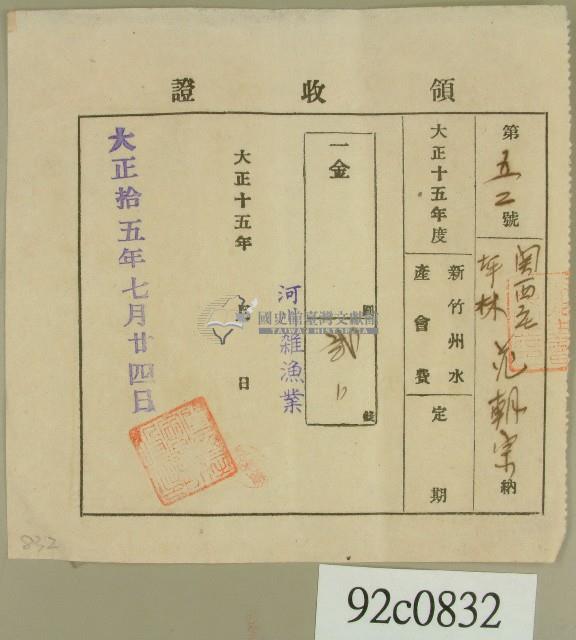 領收證
第五二號
関西庄
坪林 范朝宗 納
大正十五年度
新竹州水
產會費
定期
一金
圓
貳
錢
河川雜漁業
大正十五年
日
大正拾五年七月廿四日
國史館臺灣文獻館
TAIWAN HISTORICA
832
92c0832